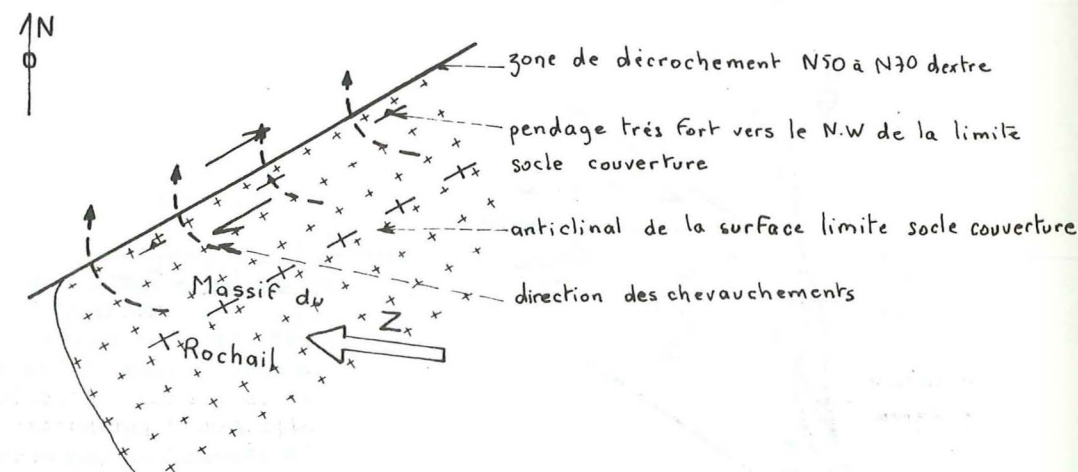 N
zone de décrochement N50 à N70 dextre
pendage trés fort vers le N.W de la limite
socle couverture
anticlinal de la surface limite socle couverture
direction des chevauchements
Massif du
Rochail
Z